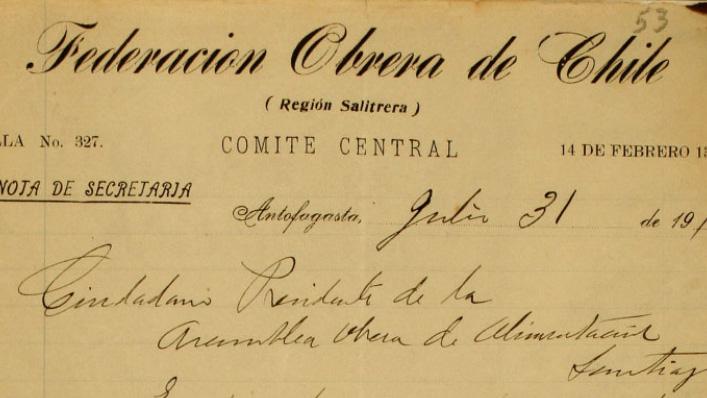 53
Federacion Obrera de Chile
( Región Salitrera )
LLA No. 327.
COMITE CENTRAL
14 DE FEBRERO 13
NOTA DE SECRETARIA
Antofagasta, Julio 31 de 191
Ciudadano Presidente de la
Asamblea Obrera de Alimentación
Santiag